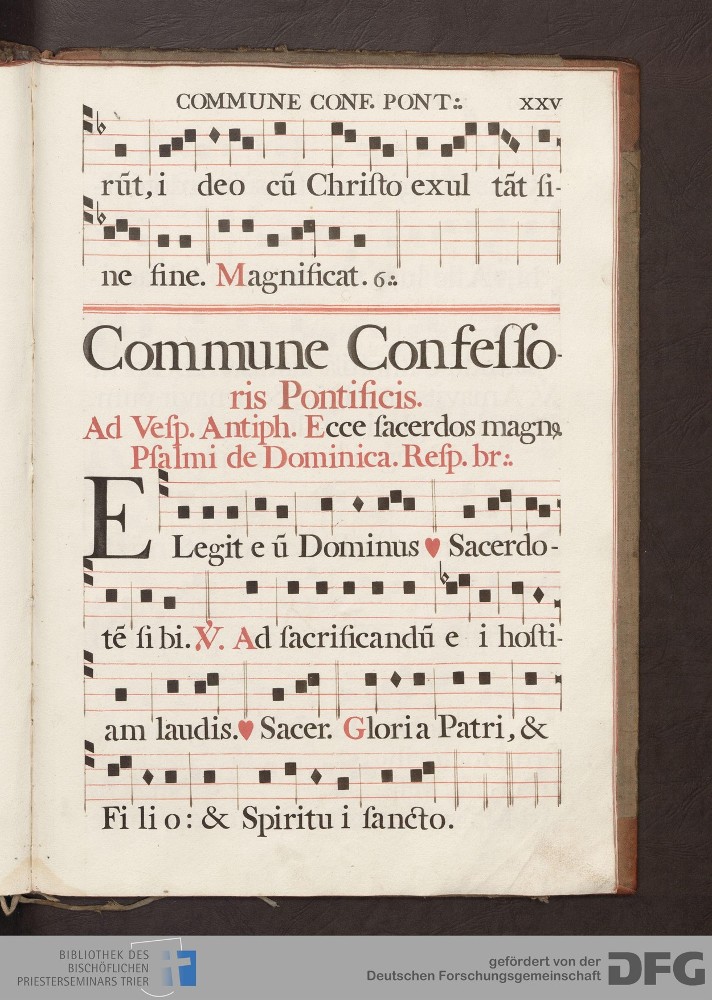 COMMUNE CONF. PONT:. XXV
rūt, i deo cū Chriſto exul tāt ſi-
ne fine. Magnificat. 6:.
Commune Confeſſo-
ris Pontificis.
Ad Veſp. Antiph. Ecce ſacerdos magnꝰ.
Pſalmi de Dominica. Reſp. br:.
ELegit e ū Dominus ♥ Sacerdo-
tē ſi bi. ℣. Ad ſacrificandū e i hoſti-
am laudis. ♥ Sacer. Gloria Patri, &
Fi li o: & Spiritu i ſancto.
BIBLIOTHEK DES
BISCHÖFLICHEN
PRIESTERSEMINARS TRIER
gefördert von der
Deutschen Forschungsgemeinschaft DFG